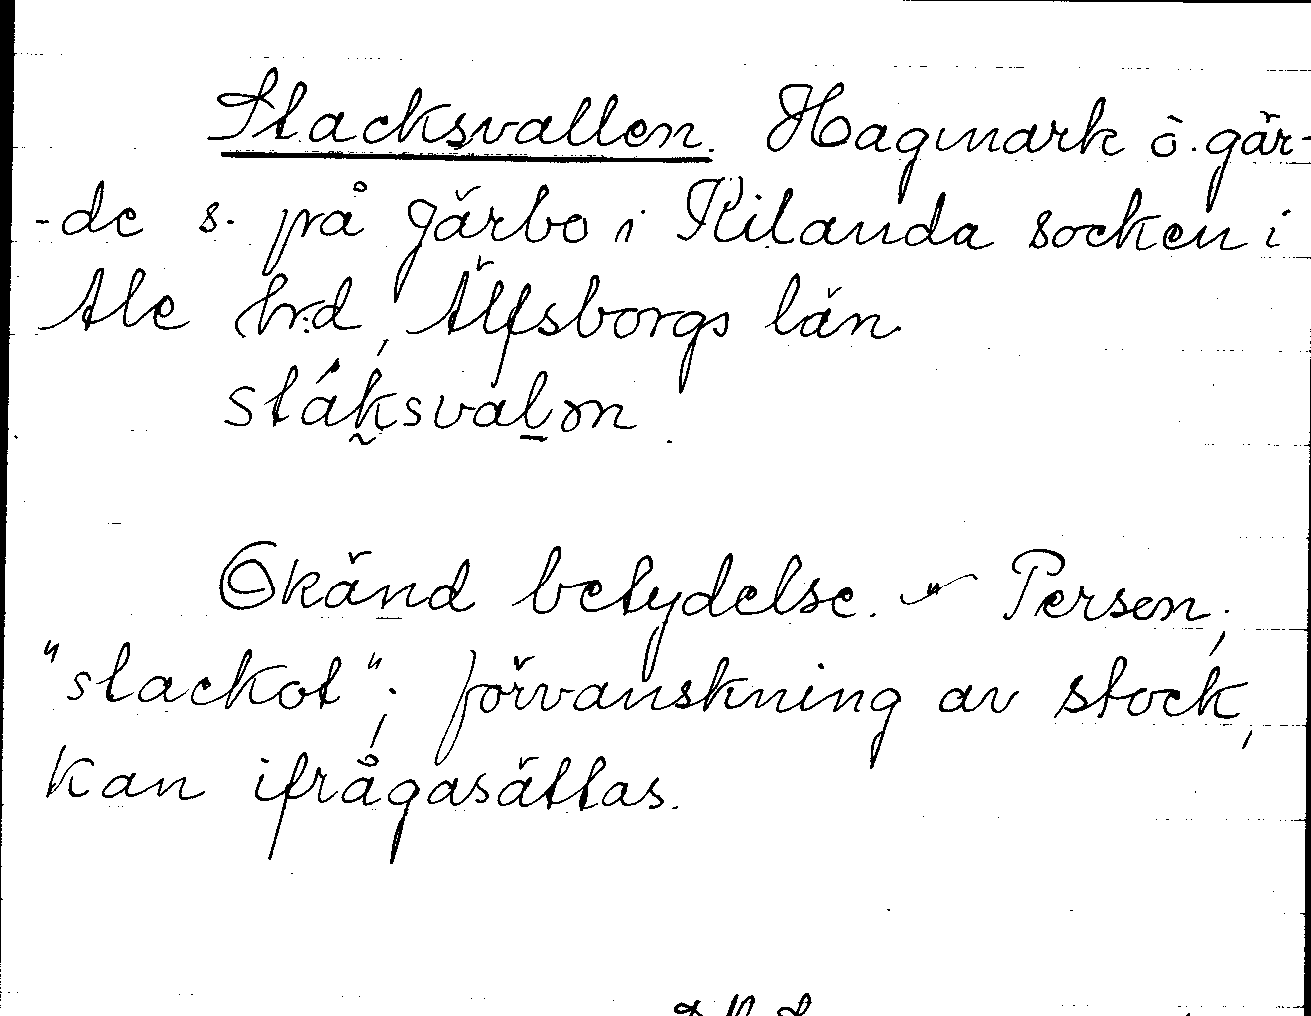 Stacksvallen. Hagmark ö. gär-
-de s. på Gärbo i Kilanda socken i
Ale hrd, Älfsborgs län
stáksvalən.
Okänd betydelse. — Person,
"stackot"; förvanskning av stock,
kan ifrågasättas.